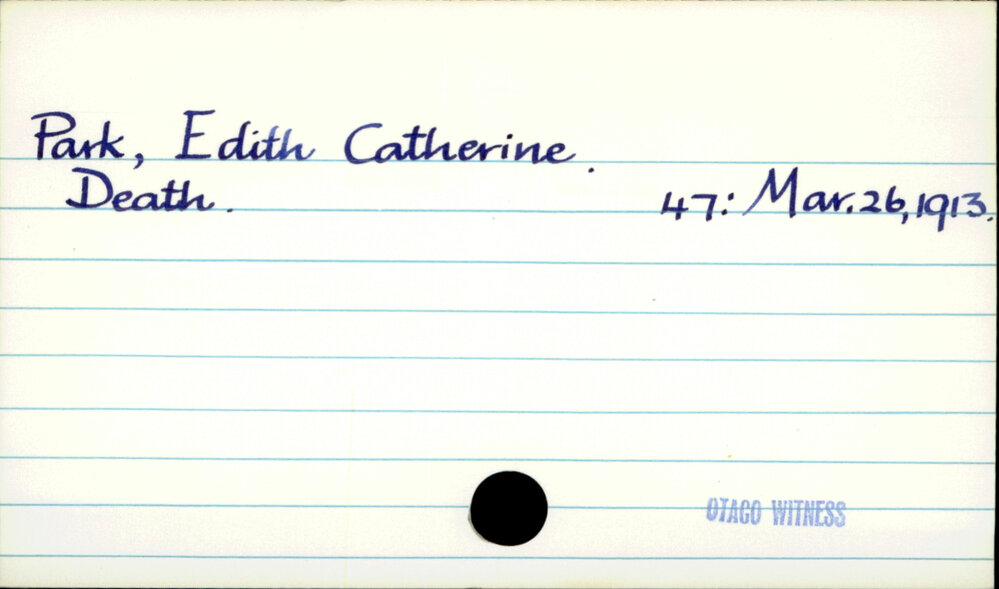 Park, Edith Catherine.
Death. 47: Mar. 26, 1913.
OTAGO WITNESS